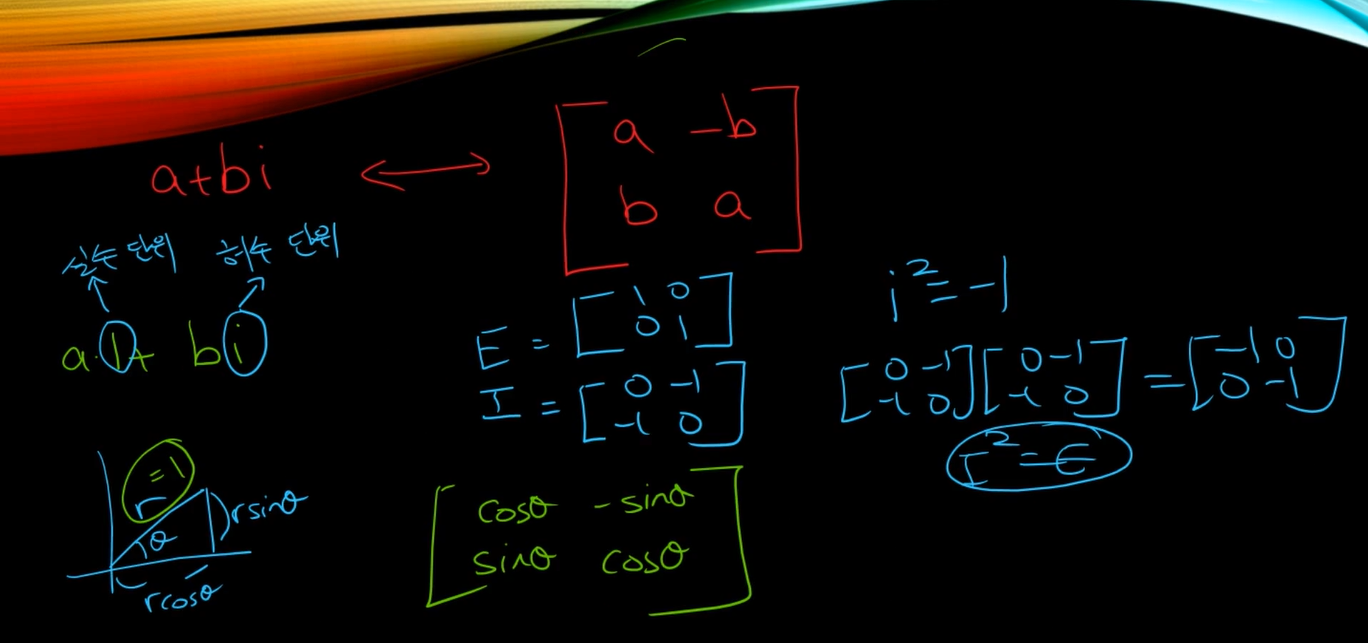 a+bi ↔ [a -b
b a]
실수 단위 허수 단위
a·1+ bi
E = [1 0
0 1]
I = [0 -1
-1 0]
i² = -1
[0 -1
-1 0] [0 -1
-1 0] = [-1 0
0 -1]
I² = -E
r =1
θ
r sinθ
r cosθ
[cosθ -sinθ
sinθ cosθ]